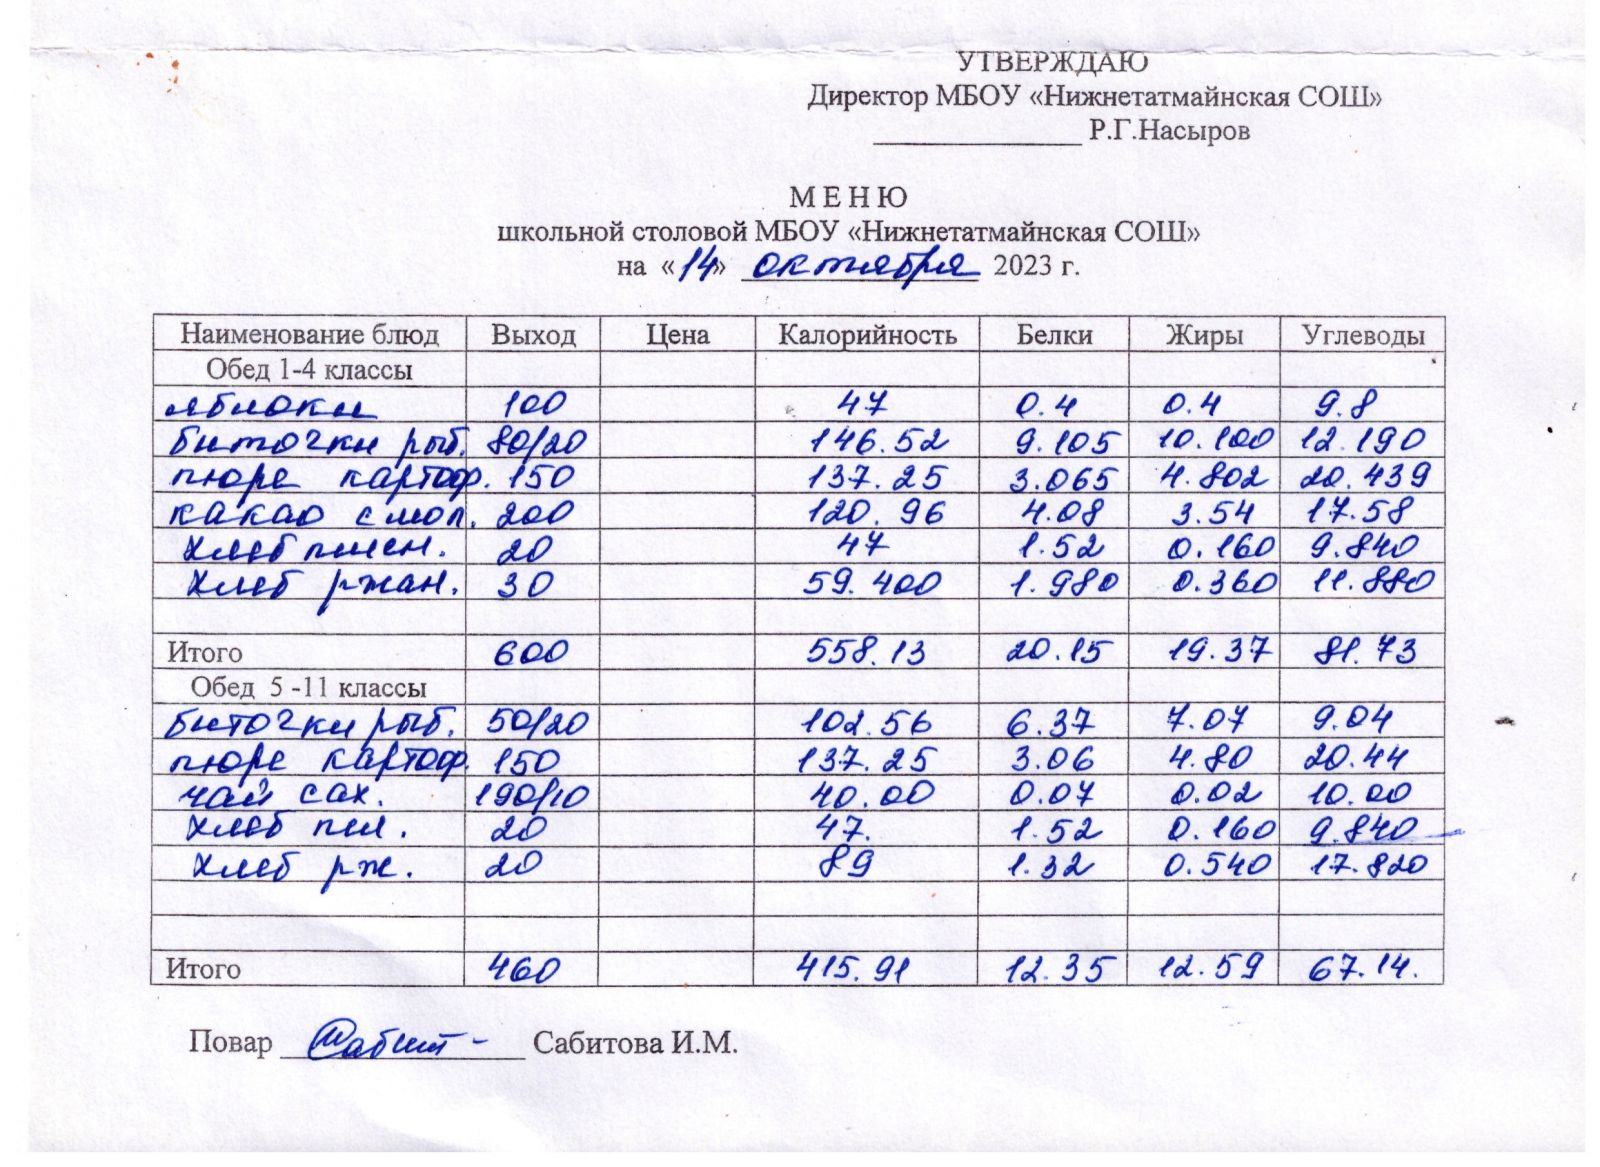 УТВЕРЖДАЮ
Директор МБОУ «Нижнетатмайнская СОШ»
_______________ Р.Г.Насыров
М Е Н Ю
школьной столовой МБОУ «Нижнетатмайнская СОШ»
на «14» октября 2023 г.
Наименование блюд Выход Цена Калорийность Белки Жиры Углеводы
Обед 1-4 классы
яблоки 100 47 0.4 0.4 9.8
биточки рыб. 80/20 146.52 9.105 10.100 12.190
пюре картоф. 150 137.25 3.065 4.802 20.439
какао с мол. 200 120.96 4.08 3.54 17.58
хлеб пшен. 20 47 1.52 0.160 9.840
хлеб ржан. 30 59.400 1.980 0.360 11.880
Итого 600 558.13 20.15 19.37 81.73
Обед 5 -11 классы
биточки рыб. 50/20 102.56 6.37 7.07 9.04
пюре картоф. 150 137.25 3.06 4.80 20.44
чай сах. 190/10 40.00 0.07 0.02 10.00
хлеб пш. 20 47. 1.52 0.160 9.840
хлеб рж. 20 89 1.32 0.540 17.820
Итого 460 415.91 12.35 12.59 67.14.
Повар Сабит- Сабитова И.М.